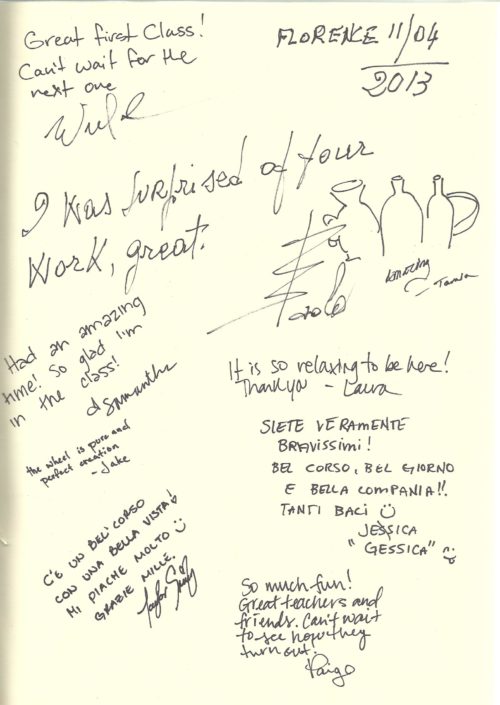 Great first Class!
Can't wait for the
next one
FLORENCE 11/04
2013
I was surprised of your
work, great.
Paolo
Amazing
- Tania
Had an amazing
time! So glad I'm
in the class!
Samantha
It is so relaxing to be here!
Thank you - Laura
the wheel is pure and
perfect creation
- Jake
SIETE VERAMENTE
BRAVISSIMI!
BEL CORSO, BEL GIORNO
E BELLA COMPANIA!!
TANTI BACI
JESSICA
"GESSICA"
C'È UN BEL CORSO
CON UNA BELLA VISTA!
MI PIACHE MOLTO
GRAZIE MILLE.
So much fun!
Great teachers and
friends. Can't wait
to see how they
turn out!
Paige